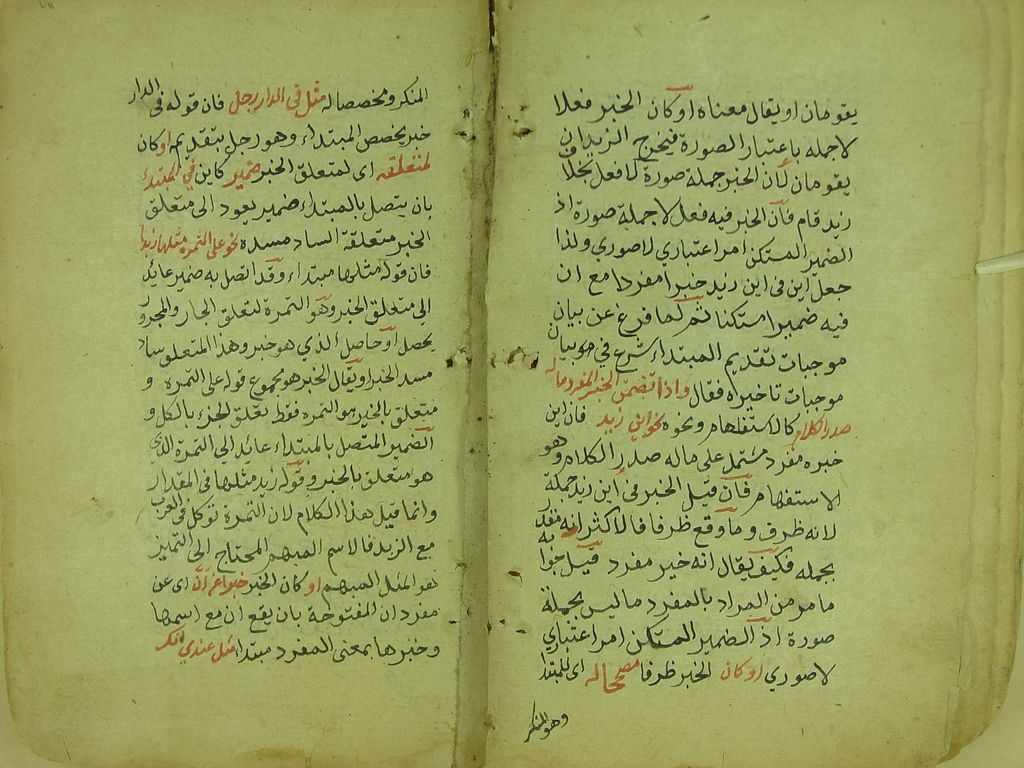 يقومان او يقال معناه او كان الخبر فعلا
لاجمله باعتبار الصورة فيخرج الزيدان
يقومان لان الخبر جملة صورة لا فعل بخلاف
زيد قام فان الخبر فيه فعل لا جملة صورة اذ
الضمير المستكن امر اعتباري لا صوري ولذا
جعل اين في اين زيد خبرا مفردا مع ان
فيه ضميرا مستكنا ثم لما فرغ عن بيان
موجبات تقديم المبتداء شرع في بيان
موجبات تاخيره فقال واذا تضمن الخبر المفرد ماله
صدر الكلام كالاستفهام ونحوه نحو اين زيد فان اين
خبره مفرد مشتمل على ماله صدر الكلام وهو
الاستفهام فان قيل الخبر في اين زيد جملة
لانه ظرف وما وقع ظرفا فالاكثر انه مقدر
بجمله فكيف يقال انه خبر مفرد قيل جوابه
ما مر من المراد بالمفرد ما ليس بجملة
صورة اذ الضمير المستكن امر اعتباري
لا صوري او كان الخبر ظرفا مصححا له اى للمبتدا
وهو المنكر
المنكر ومخصصا له مثل في الدار رجل فان قوله في الدار
خبر يخصص المبتداء وهو رجل بتقديمه او كان
لمتعلقه اى لمتعلق الخبر ضمير كاين في المبتداء
بان يتصل بالمبتداء ضمير يعود الى متعلق
الخبر متعلقة الساد مسده نحو على التمرة مثلها زبدا
فان قوله مثلها مبتداء وقد اتصل به ضمير عايد
الي متعلق الخبر وهو التمرة لتعلق الجار والمجرور
يحصل او حاصل الذي هو خبر وهذا المتعلق ساد
مسد الخبر او يقال الخبر هو مجموع قوله على التمرة و
متعلق بالخبر هو التمره فقط تعلق الجزء بالكل و
الضمير المتصل بالمبتداء عايد الي التمرة الذي
هو متعلق بالخبر وقوله زبد مثلها في المقدار
وانما قيل هذا الكلام لان التمرة توكل في العرب
مع الزبد فالاسم المبهم المحتاج الى التمييز
هو المثل المبهم او كان الخبر خبرا عن ان اى عن
مفرد ان المفتوحة بان يقع ان مع اسمها
وخبرها بمعنى المفرد مبتدا مثل عندي انك